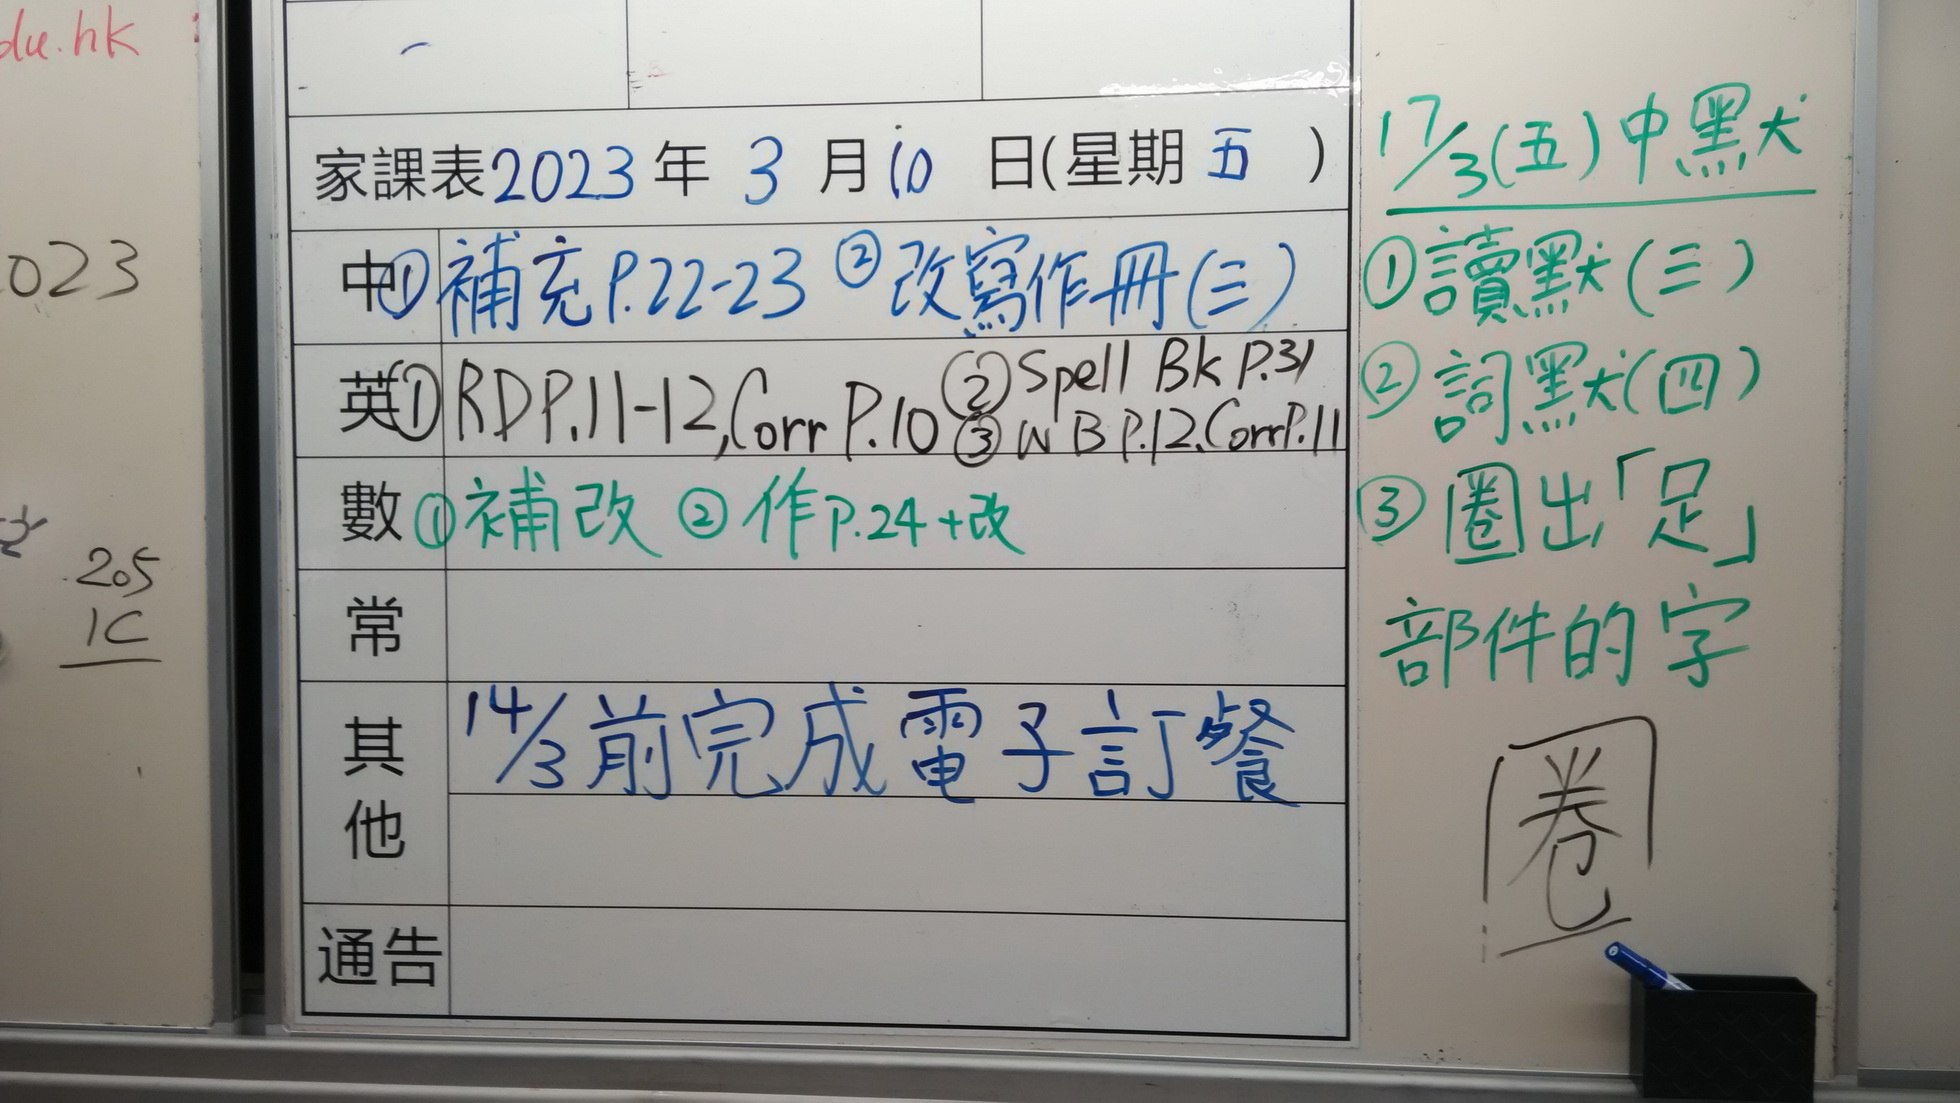 du.hk
023
205
1C
家課表2023年 3 月 10 日(星期 五 )
中 ①補充P.22-23 ②改寫作冊(三)
英 ①RD P.11-12, Corr P.10 ②Spell Bk P.31
③WB P.12, Corr P.11
數 ①補改 ②作P.24+改
常
其他
14/3前完成電子訂餐
通告
17/3(五)中默
①讀默(三)
②詞默(四)
③圈出「足」
部件的字
圈